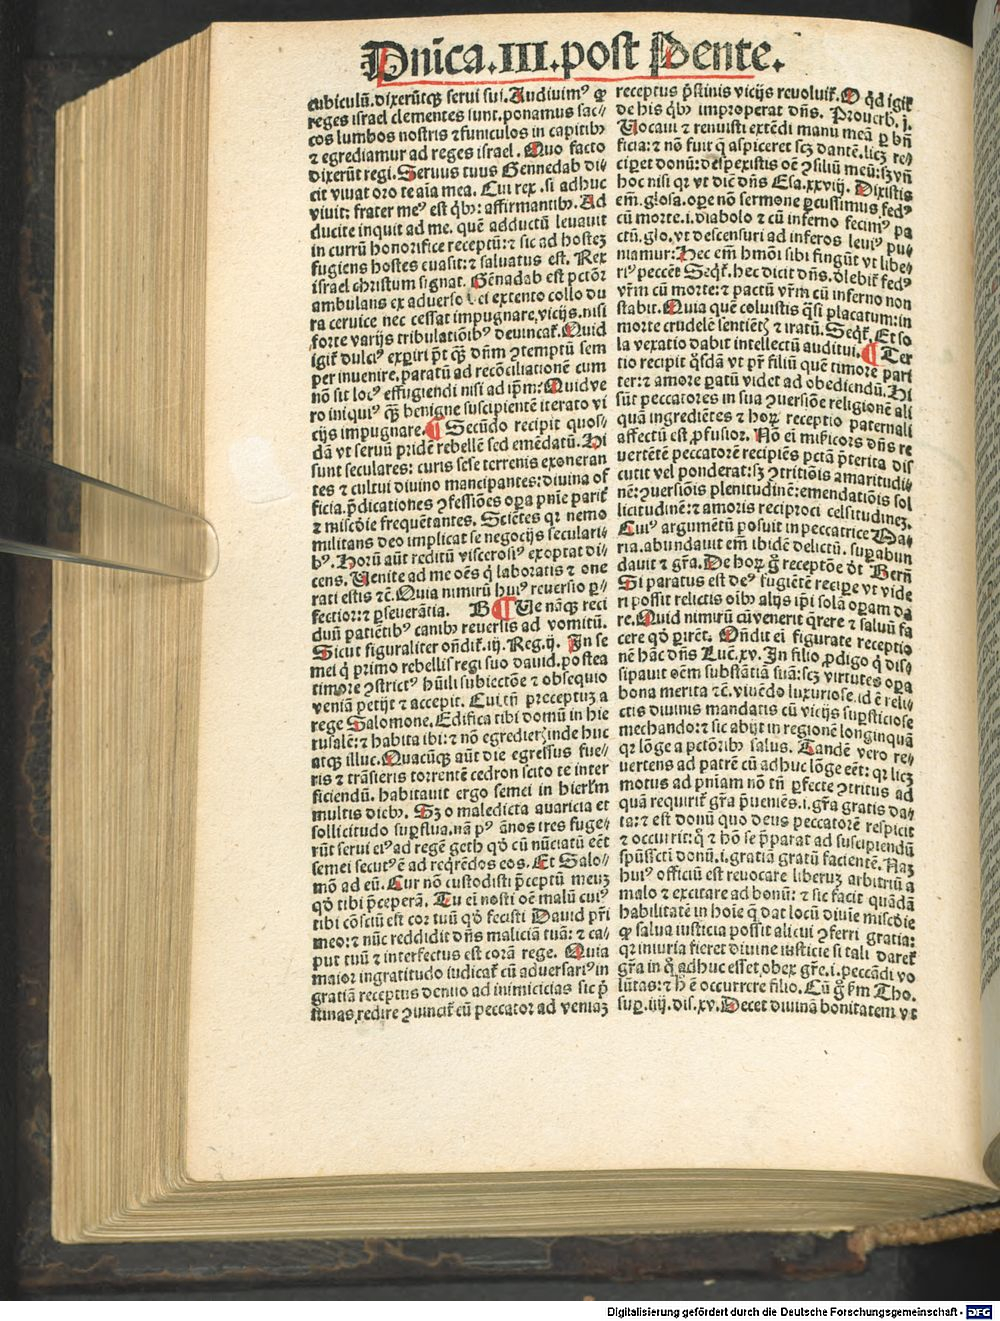 Dnica.III.post Pente.
cubiculū.dixerūtqꝫ serui sui. Audiuimꝰ ꝙ
reges israel clementes sunt. ponamus sac⸗
cos lumbos nostris ⁊ funiculos in capitibꝰ
⁊ egrediamur ad reges israel. Quo facto
dixerūt regi. Seruus tuus Bennedab di⸗
cit viuat oro te aīa mea. Cui rex. si adhuc
viuit: frater meꝰ est qͥbꝰ: affirmantibꝰ. Ad
ducite inquit ad me. quē adductū leuauit
in currū honorifice receptū: ⁊ sic ad hosteꝫ
fugiens hostes euasit: ⁊ saluatus est. Rex
israel christum signat. Bēnadab est pctōr
ambulans ex aduerso dei extento collo du
ra ceruice nec cessat impugnare, vicijs. nisi
forte varijs tribulatiōibꝰ deuincat̄. Quid
igit̄ dulciꝰ experiri pōt qꝫ dn̄m ꝯtemptū sem
per inuenire, paratū ad recōciliationē cum
nō sit locꝰ effugiendi nisi ad ip̄m: Quid ve
ro iniquiꝰ qꝫ benigne suscipientē iterato vi
cijs impugnare. ¶ Secūdo recipit quos⸗
dā vt seruū pridē rebellē sed emēdatū. Hi
sunt seculares: curis sese terrenis exoneran
tes ⁊ cultui diuino mancipantes: diuina of
ficia. p̄dicationes ꝯfessiōes oꝑa pn̄ie parit̄
⁊ mīscōie frequētantes. Sciētes qꝛ nemo
militans deo implicat se negocijs seculari⸗
bꝰ. Horū aūt reditū viscerosiꝰ exoptat di⸗
cens. Venite ad me oēs q̄ laboratis ⁊ one
rati estis ⁊c̄. Quia nimirū huiꝰ reuersio ꝑ⸗
fectior: ⁊ ꝑseuerātia. B ¶ Ve nāqꝫ reci
duū patiētibꝰ canibꝰ reuersis ad vomitū.
Sicut figuraliter on̄dit̄. iij. Reg. ij. In se
mei q̄ primo rebellis regi suo dauid. postea
timore ꝯstrictꝰ hūili subiectōe ⁊ obsequio
veniā petijt ⁊ accepit. Cui tn̄ preceptuꝫ a
rege Salomone. Edifica tibi domū in hie
rusalē: ⁊ habita ibi: ⁊ nō egredier̄ inde huc
atqꝫ illuc. Quacūqꝫ aūt die egressus fue⸗
ris ⁊ trāsieris torrentē cedron scito te inter
ficiendū. habitauit ergo semei in hierl̄m
multis diebꝰ. Sꝫ o maledicta auaricia et
sollicitudo suꝑflua. nā pꝰ ānos tres fuge⸗
rūt serui eiꝰ ad regē geth qd̓ cū nūciatū eēt
semei secutꝰ ē ad reqͥrēdos eos. Et Salo⸗
mō ad eū. Cur nō custodisti p̄ceptū meuꝫ
qd̓ tibi p̄ceperā. Tu ei nosti oē malū cuiꝰ
tibi cōsciū est cor tuū qd̓ fecisti Dauid pr̄i
meo: ⁊ nūc reddidit dn̄s maliciā tuā: ⁊ ca⸗
put tuū ⁊ interfectus est corā rege. Quia
maior ingratitudo iudicat̄ cū aduersariꝰ in
gratiā receptus denuo ad inimicicias sic p̄
stinas, redire ꝯuincit̄ cū peccator ad veniaꝫ
receptus p̄stinis vicijs reuoluit̄. O qd̓ igit̄
de his qͥbꝰ improperat dn̄s. Prouerb. j.
Vocaui ⁊ renuisti extēdi manū meā ꝑ bn̄
ficia: ⁊ nō fuit q̄ aspiceret scꝫ dantē. licꝫ re⸗
ciperet donū: despexistis oē ꝯsiliū meū: sꝫ vn̄
hoc nisi qꝛ vt dic̄ dn̄s Esa. xxviij. Dixistis
em̄. glosa. opere nō sermone ꝑcussimus fedꝰ
cū morte. i. diabolo ⁊ cū inferno fecimꝰ pa
ctū. glo. vt descensuri ad inferos leuiꝰ pu⸗
niamur: Hec em̄ hmōi sibi fingūt vt libe⸗
riꝰ peccēt Seqͥt̄. hec dicit dn̄s. delebit̄ fedꝰ
vr̄m cū morte: ⁊ pactū vr̄m cū inferno non
stabit. Quia quē coluistis qͣsi placatum: in
morte crudelē sentiēt̄ ⁊ iratū. Seqͥt̄. Et so
la vexatio dabit intellectū auditui. ¶ Ter
tio recipit qͦsdā vt pr̄ filiū quē timore pari
ter: ⁊ amore ꝑatū videt ad obediendū. Hi
sūt peccatores in sua ꝯuersiōe religionē ali
quā ingrediētes ⁊ horꝫ receptio paternali
affectū est ꝓfusior. Nō ei mīsicors dn̄s re
uertētē peccatorē recipiēs pctā p̄terita dis
cutit vel ponderat: sꝫ ꝯtritiōis amaritudi⸗
nē: ꝯuersiōis plenitudinē: emendatiōis sol
licitudinē: ⁊ amoris reciproci celsitudineꝫ.
Cuiꝰ argumētū posuit in peccatrice Ma⸗
ria. abundauit em̄ ibidē delictū. suꝑabun
dauit ⁊ gr̄a. De horꝫ ḡ receptōe dōt Bern̄
Si paratus est deꝰ fugiētē recipe vt vide
ri possit relictis oībꝰ alijs ip̄i solā oꝑam da
re. Quid nimirū cū venerit q̄rere ⁊ saluū fa
cere qd̓ ꝑirēt. On̄dit ei figurate receptio
nē hāc dn̄s Luc̄. xv. In filio ꝓdigo q̄ dis⸗
sipauit oēm substātiā suā: scꝫ virtutes oꝑa
bona merita ⁊c̄. viuēdo luxuriose. id ē reli⸗
ctis diuinis mandatis cū vicijs suꝑsticiose
mechando: ⁊ sic abijt in regionē longinquā
qꝛ lōge a pctōribꝰ salus. Tandē vero re⸗
uertens ad patrē cū adhuc lōge eēt: qꝛ licꝫ
motus ad pniam nō tn̄ ꝑfecte ꝯtritus ad
quā requirit̄ gr̄a p̄ueniēs. i. gr̄a gratis da⸗
ta: ⁊ est donū quo deus peccatorē respicit
⁊ occurrit: q̄ ⁊ hō se p̄parat ad suscipiendū
spūssctī donū. i. gratia gratū facientē. Naꝫ
huiꝰ officiū est reuocare liberuꝫ arbitriū a
malo ⁊ excitare ad bonū: ⁊ sic facit quādā
habilitatē in hoīe q̄ dat locū diuie misc̄die
ꝙ salua iusticia possit alicui ꝯferri gratia:
qꝛ iniuria fieret diuine iusticie si tali daret̄
gr̄a in q̄ adhuc esset, obex gr̄e. i. peccādi vo
lūtas: ⁊ h̄ ē occurrere filio. Cū ḡ ẜm Tho.
suꝑ. iiij. dis. xv. Decet diuinā bonitatem vt
Digitalisierung gefördert durch die Deutsche Forschungsgemeinschaft - DFG